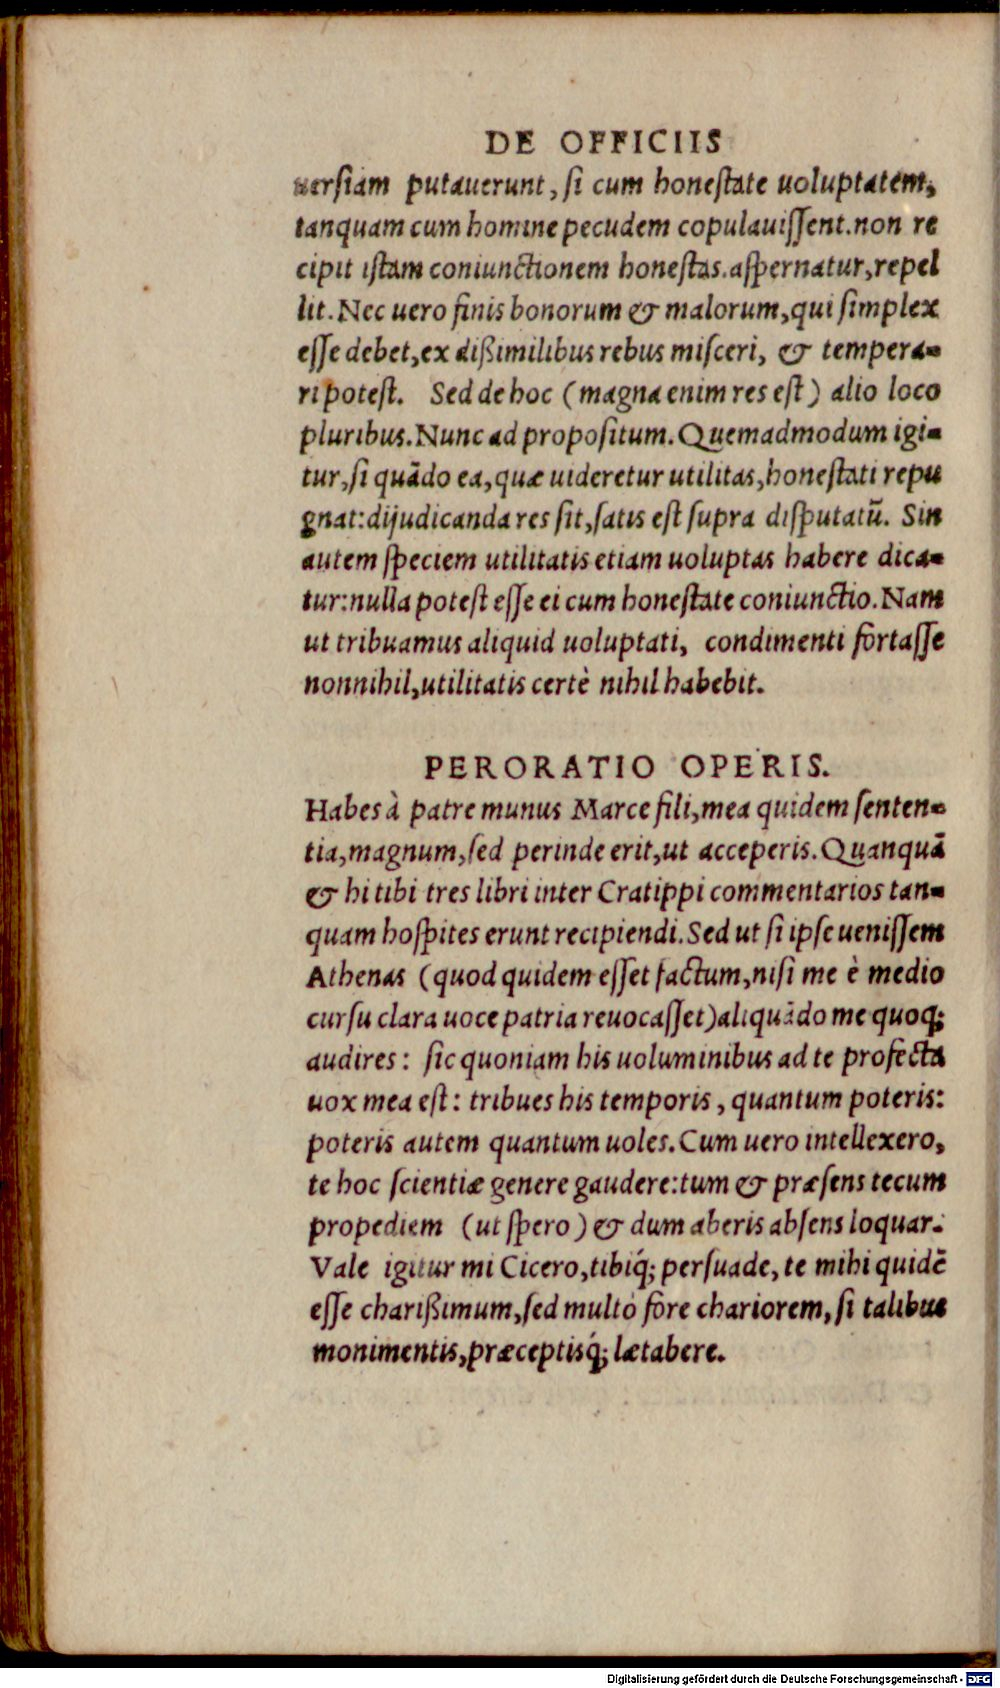 DE OFFICIIS
uersiam putauerunt, si cum honestate uoluptatem,
tanquam cum homine pecudem copulauissent. non re
cipit istam coniunctionem honestas. aspernatur, repel
lit. Nec uero finis bonorum & malorum, qui simplex
esse debet, ex dißimilibus rebus misceri, & tempera-
ri potest. Sed de hoc (magna enim res est) alio loco
pluribus. Nunc ad propositum. Quemadmodum igi-
tur, si quãdo ea, quæ uideretur utilitas, honestati repu
gnat: dijudicanda res sit, satis est supra disputatũ. Sin
autem speciem utilitatis etiam uoluptas habere dica-
tur: nulla potest esse ei cum honestate coniunctio. Nam
ut tribuamus aliquid uoluptati, condimenti fortasse
nonnihil, utilitatis certè nihil habebit.
PERORATIO OPERIS.
Habes à patre munus Marce fili, mea quidem senten-
tia, magnum, sed perinde erit, ut acceperis. Quanquã
& hi tibi tres libri inter Cratippi commentarios tan-
quam hospites erunt recipiendi. Sed ut si ipse uenissem
Athenas (quod quidem esset factum, nisi me è medio
cursu clara uoce patria reuocasset) aliquãdo me quoq;
audires: sic quoniam his uoluminibus ad te profecta
uox mea est: tribues his temporis, quantum poteris:
poteris autem quantum uoles. Cum uero intellexero,
te hoc scientiæ genere gaudere: tum & præsens tecum
propediem (ut spero) & dum aberis absens loquar.
Vale igitur mi Cicero, tibiq́; persuade, te mihi quidẽ
esse charißimum, sed multò fore chariorem, si talibus
monimentis, præceptisq́; lætabere.
Digitalisierung gefördert durch die Deutsche Forschungsgemeinschaft - DFG